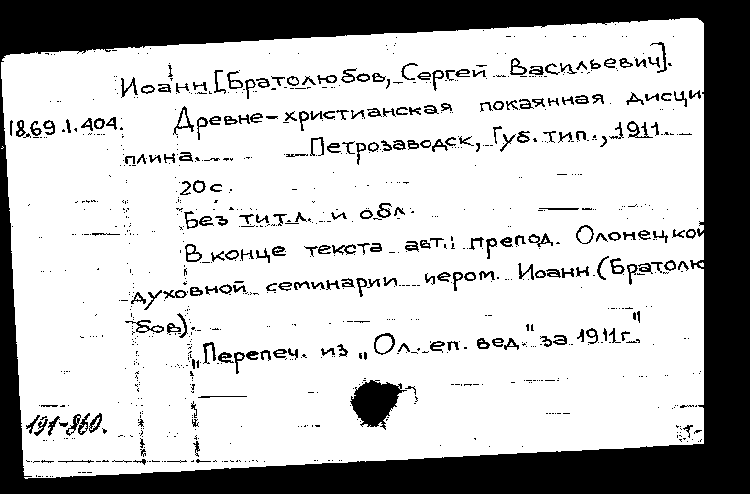 Иоанн [Братолюбов, Сергей Васильевич].
18.69.1.404. Древне-христианская покаянная дисци-
плина. Петрозаводск, Губ. тип., 1911.
20 с.
Без тит.л. и обл.
В конце текста авт.: препод. Олонецкой
духовной семинарии иером. Иоанн (Братолю
бов).
„Перепеч. из „Ол. еп. вед." за 1911г."
191-860.